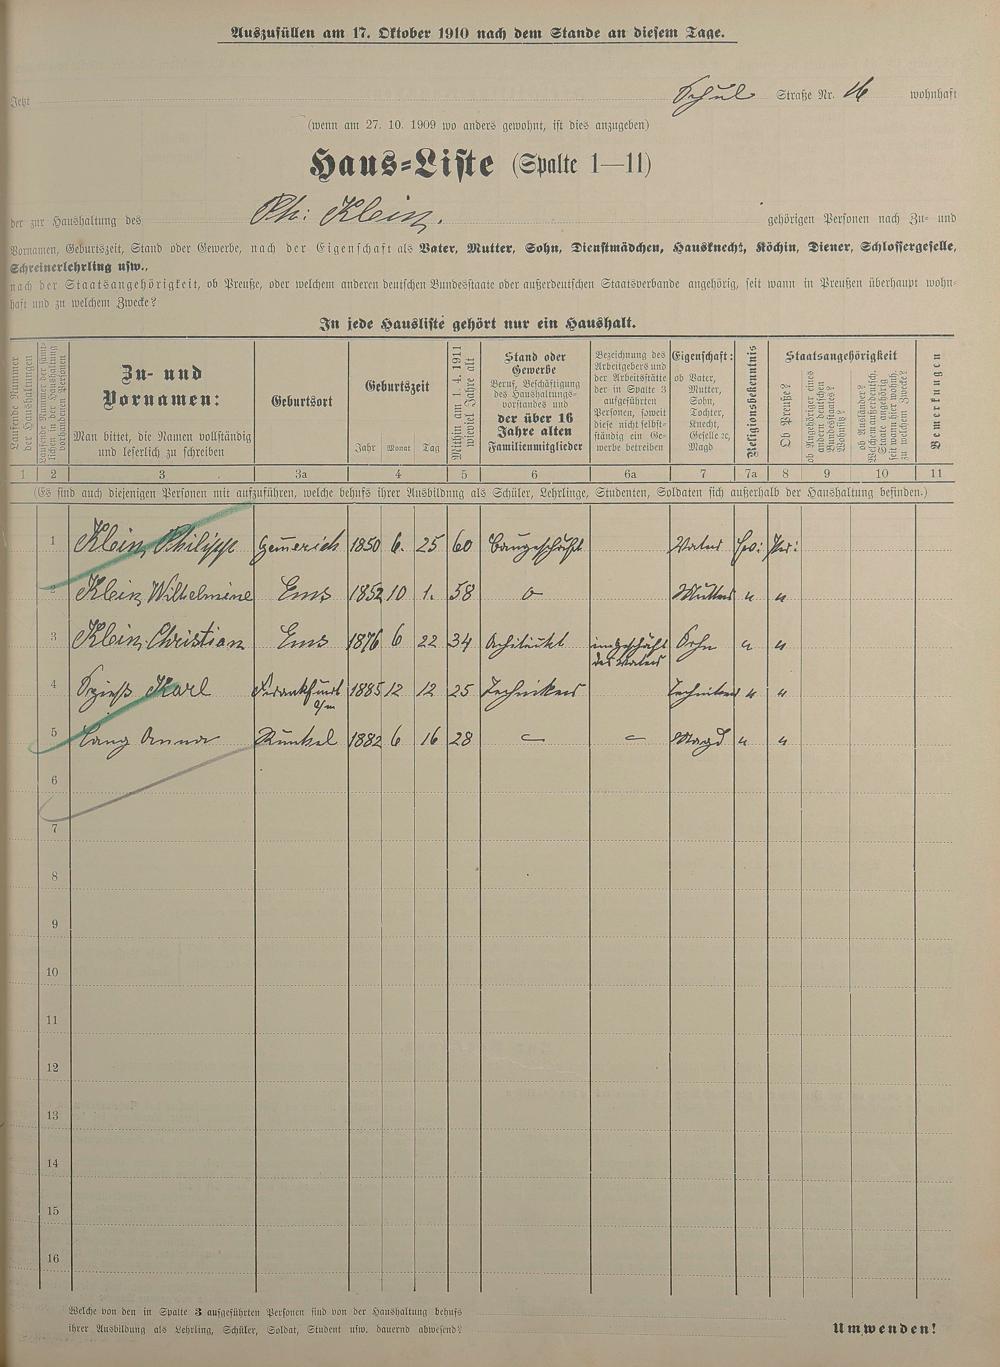 Auszufüllen am 17. Oktober 1910 nach dem Stande an diesem Tage.
Jetzt Schul Straße Nr. 16 wohnhaft
(wenn am 27. 10. 1909 wo anders gewohnt, ist dies anzugeben)
Haus-Liste (Spalte 1—11)
der zur Haushaltung des Ph: Klein. gehörigen Personen nach Zu- und
Vornamen, Geburtszeit, Stand oder Gewerbe, nach der Eigenschaft als Vater, Mutter, Sohn, Dienstmädchen, Hausknecht, Köchin, Diener, Schlossergeselle,
Schreinerlehrling usw.,
nach der Staatsangehörigkeit, ob Preuße, oder welchem anderen deutschen Bundesstaate oder außerdeutschen Staatsverbande angehörig, seit wann in Preußen überhaupt wohn-
haft und zu welchem Zwecke?
In jede Hausliste gehört nur ein Haushalt.
Laufende Nummer der Haushaltungen
Laufende Nummer der sämtlichen in der Haushaltung vorhandenen Personen
Zu- und
Vornamen:
Man bittet, die Namen vollständig
und leserlich zu schreiben
Geburtsort
Geburtszeit
Jahr Monat Tag
Mithin am 1. 4. 1911
wieviel Jahre alt
Stand oder
Gewerbe
Beruf, Beschäftigung
des Haushaltungs-
vorstandes und
der über 16
Jahre alten
Familienmitglieder
Bezeichnung des
Arbeitgebers und
der Arbeitsstätte
der in Spalte 3
aufgeführten
Personen, soweit
diese nicht selbst-
ständig ein Ge-
werbe betreiben
Eigenschaft:
ob Vater,
Mutter,
Sohn,
Tochter,
Knecht,
Geselle ꝛc,
Magd
Religionsbekenntnis
Staatsangehörigkeit
Ob Preuße?
ob Angehöriger eines
andern deutschen
Bundesstaates?
Wohnsitz?
ob Ausländer?
Welchem außerdeutsch.
Staate angehörig
seit wann hier wohnh.
zu welchem Zwecke?
Bemerkungen
1 2 3 3a 4 5 6 6a 7 7a 8 9 10 11
(Es sind auch diejenigen Personen mit aufzuführen, welche behufs ihrer Ausbildung als Schüler, Lehrlinge, Studenten, Soldaten sich außerhalb der Haushaltung befinden.)
1 Klein, Philipp Gemmerich 1850 6. 25 60 Baugeschäft Vater
2 Klein, Wilhelmine Ems 1852 10 1. 58 Mutter " "
3 Klein, Christian Ems 1876 6 22 34 Architekt im Geschäft des Vaters Sohn " "
4 Karl Frankfurt a/m 1885 12 12 25 Techniker Techniker " "
5 Lang Anna Runkel 1882 6 16 28 — — Magd " "
6
7
8
9
10
11
12
13
14
15
16
Welche von den in Spalte 3 aufgeführten Personen sind von der Haushaltung behufs
ihrer Ausbildung als Lehrling, Schüler, Soldat, Student usw. dauernd abwesend?
Umwenden!